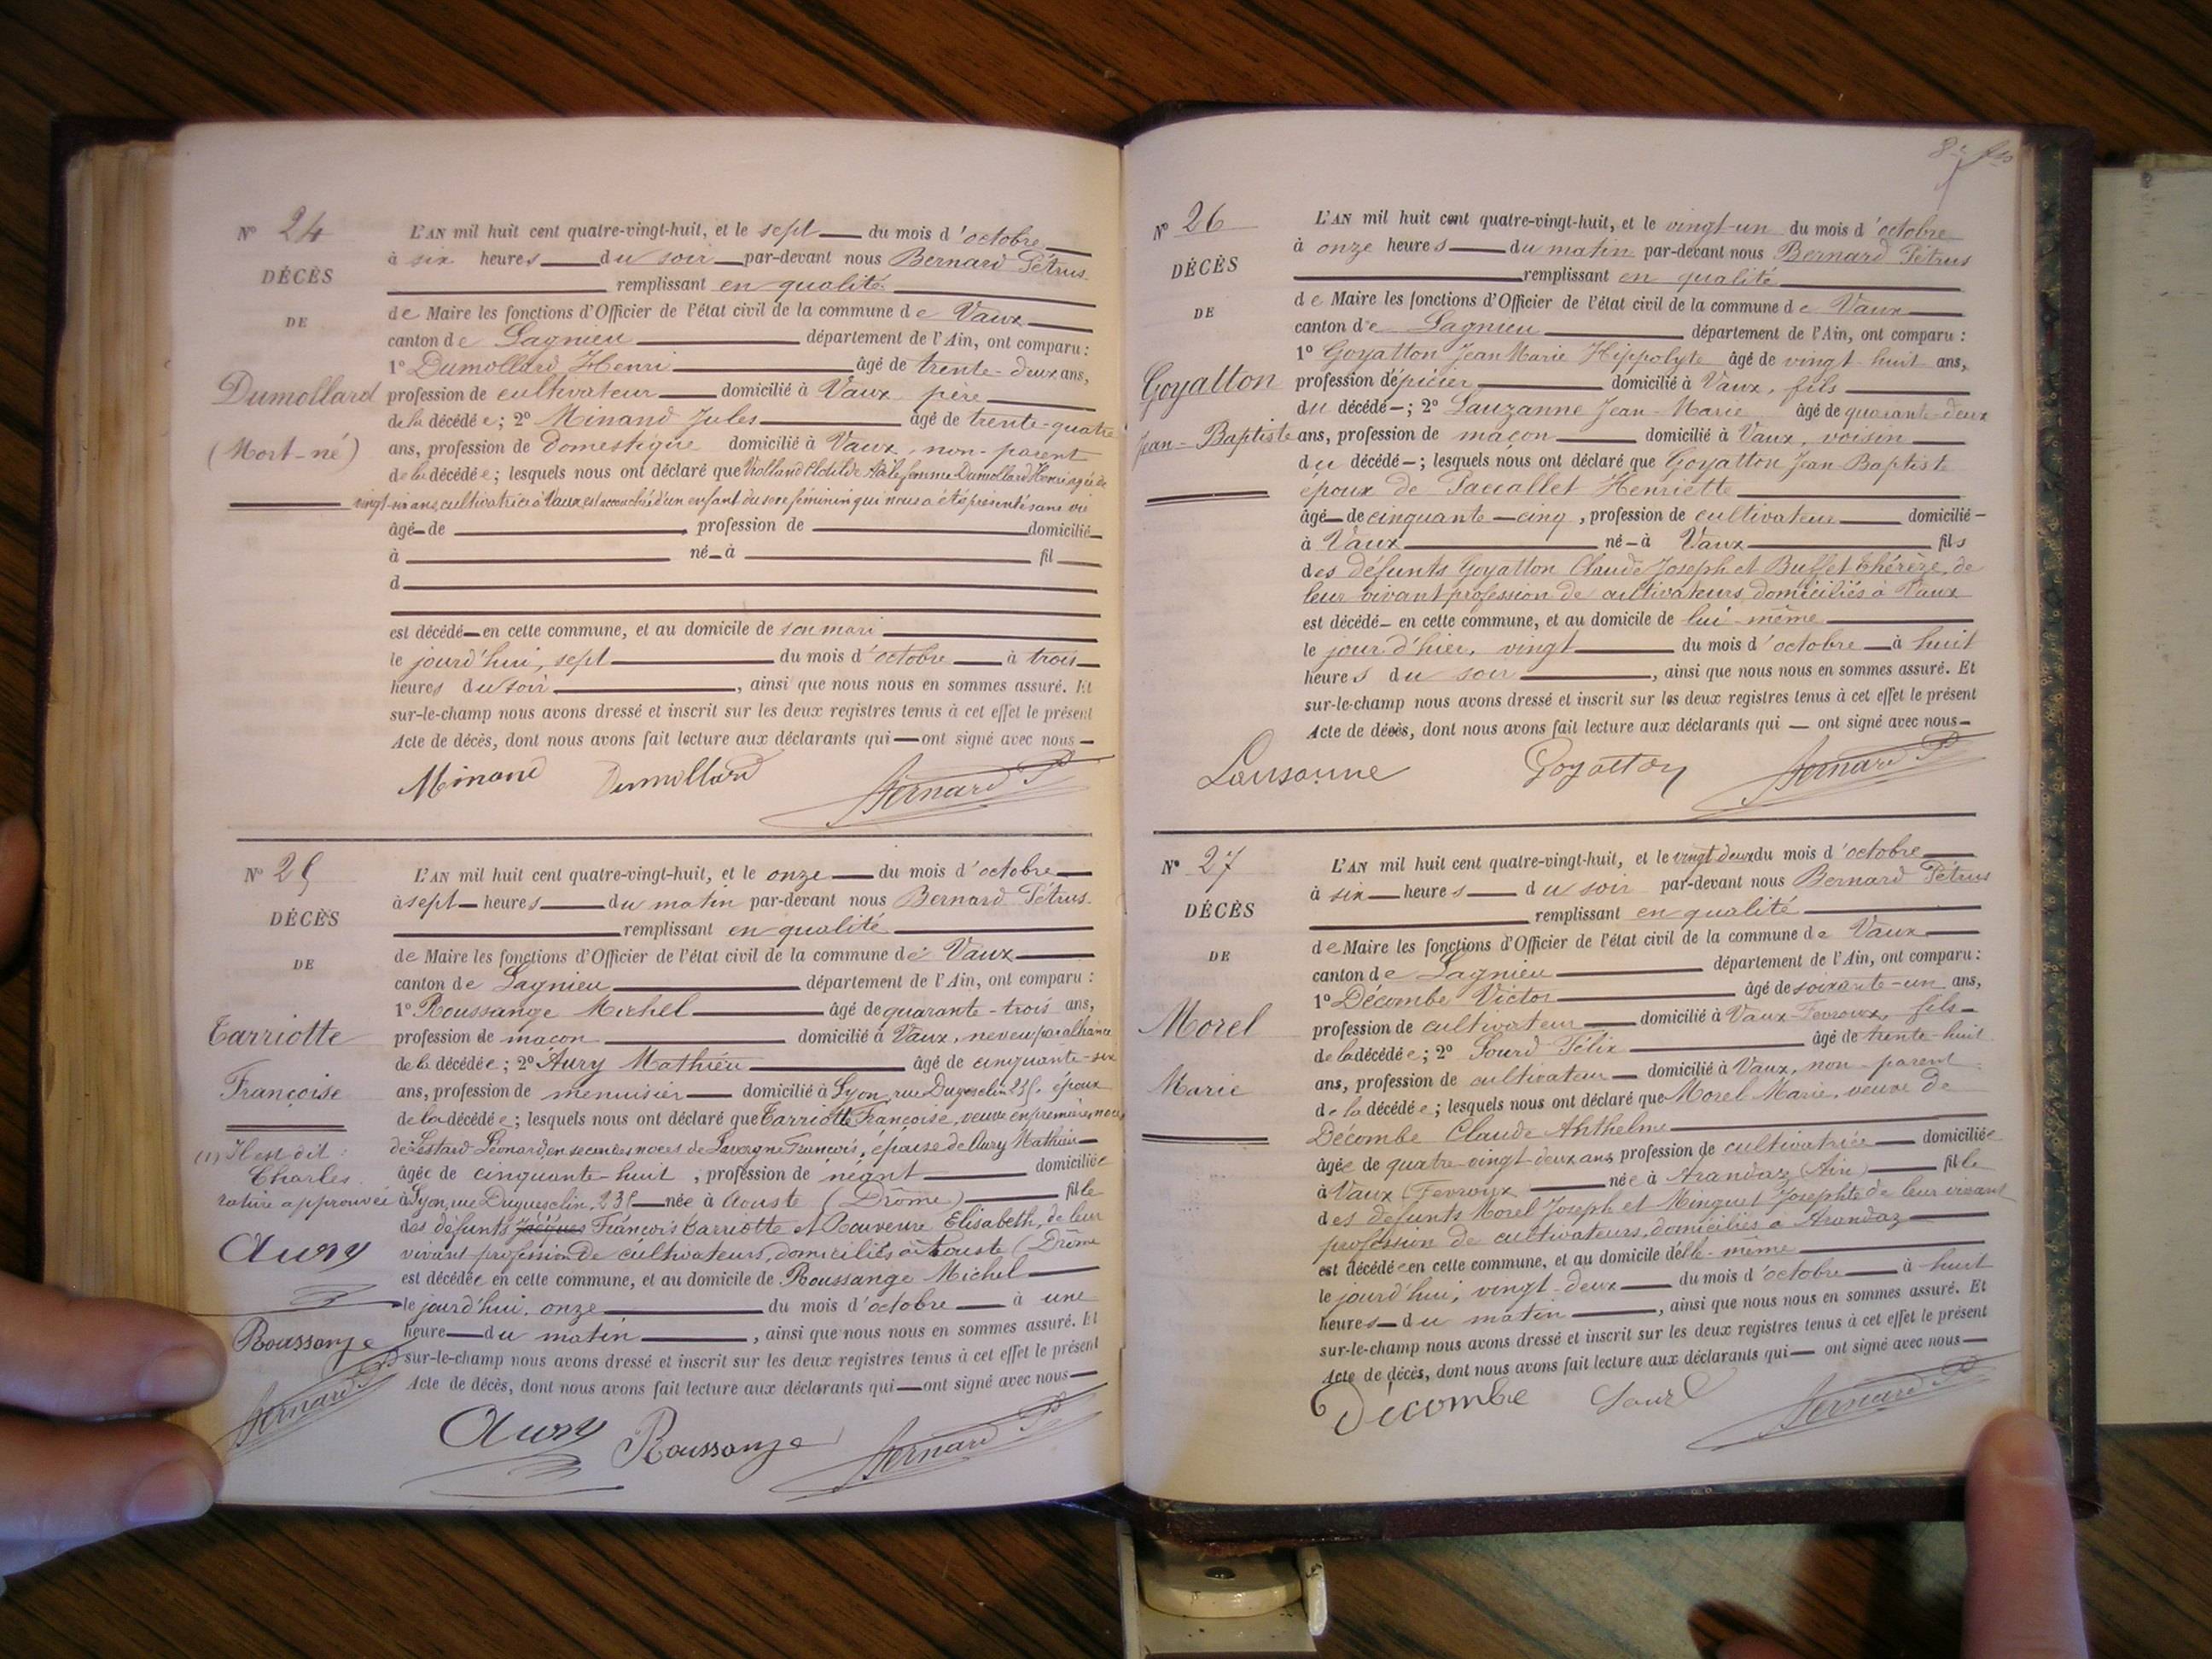 N° 24
DÉCÈS
DE
Dumollard
(Mort-né)
L'AN mil huit cent quatre-vingt-huit, et le sept du mois d'octobre
à six heures du soir par-devant nous Bernard Pétrus
remplissant en qualité
de Maire les fonctions d'Officier de l'état civil de la commune de Vaux
canton de Lagnieu département de l'Ain, ont comparu :
1° Dumollard Henri âgé de trente-deux ans,
profession de cultivateur domicilié à Vaux père
de la décédée ; 2° Minand Jules âgé de trente-quatre
ans, profession de domestique domicilié à Vaux, non-parent
de la décédée ; lesquels nous ont déclaré que Violland Clotilde femme Dumollard Henri agée de
vingt-six ans, cultivatrice à Vaux est accouchée d'un enfant du sexe féminin qui nous a été présenté sans vie
âgé de , profession de domicilié
à né à fil
d
est décédé en cette commune, et au domicile de son mari
le jourd'hui, sept du mois d'octobre à trois
heures du soir , ainsi que nous nous en sommes assuré. Et
sur-le-champ nous avons dressé et inscrit sur les deux registres tenus à cet effet le présent
Acte de décès, dont nous avons fait lecture aux déclarants qui ont signé avec nous
Minand Dumollard Bernard P
N° 25
DÉCÈS
DE
Tarriotte
Françoise
(1) Il est dit :
Charles.
rature approuvée
Aury
Roussange
Bernard P
L'AN mil huit cent quatre-vingt-huit, et le onze du mois d'octobre
à sept heures du matin par-devant nous Bernard Pétrus.
remplissant en qualité
de Maire les fonctions d'Officier de l'état civil de la commune de Vaux
canton de Lagnieu département de l'Ain, ont comparu :
1° Roussange Michel âgé de quarante-trois ans,
profession de maçon domicilié à Vaux, neveu par alliance
de la décédée ; 2° Aury Mathieu âgé de cinquante-six
ans, profession de menuisier domicilié à Lyon, rue Duguesclin 235. époux
de la décédée ; lesquels nous ont déclaré que Tarriotte Françoise, veuve en premières noces
de Lestard Léonard, en secondes noces de Lavergne François, épouse de Aury Mathieu
âgée de cinquante-huit , profession de néant domiciliée
à Lyon, rue Duguesclin, 235 née à Aouste (Drôme) fille
des défunts Jacques François Tarriotte et Rouveure Elisabeth, de leur
vivant profession de cultivateurs, domiciliés à Aouste (Drôme
est décédée en cette commune, et au domicile de Roussange Michel
le jourd'hui, onze du mois d'octobre à une
heure du matin , ainsi que nous nous en sommes assuré. Et
sur-le-champ nous avons dressé et inscrit sur les deux registres tenus à cet effet le présent
Acte de décès, dont nous avons fait lecture aux déclarants qui ont signé avec nous
Aury Roussange Bernard P
N° 26
DÉCÈS
DE
Goyatton
Jean-Baptiste
L'AN mil huit cent quatre-vingt-huit, et le vingt-un du mois d'octobre
à onze heures du matin par-devant nous Bernard Pétrus
remplissant en qualité
de Maire les fonctions d'Officier de l'état civil de la commune de Vaux
canton de Lagnieu département de l'Ain, ont comparu :
1° Goyatton Jean Marie Hippolyte âgé de vingt-huit ans,
profession d'épicier domicilié à Vaux, fils
du décédé ; 2° Lauzanne Jean-Marie âgé de quarante-deux
ans, profession de maçon domicilié à Vaux, voisin
du décédé ; lesquels nous ont déclaré que Goyatton Jean-Baptiste
époux de Paccallet Henriette
âgé de cinquante-cinq , profession de cultivateur domicilié
à Vaux né à Vaux fils
des défunts Goyatton Claude Joseph et Buffet Thérèze, de
leur vivant profession de cultivateurs, domiciliés à Vaux
est décédé en cette commune, et au domicile de lui-même
le jour d'hier, vingt du mois d'octobre à huit
heures du soir , ainsi que nous nous en sommes assuré. Et
sur-le-champ nous avons dressé et inscrit sur les deux registres tenus à cet effet le présent
Acte de décès, dont nous avons fait lecture aux déclarants qui ont signé avec nous
Lausanne Goyatton Bernard P
N° 27
DÉCÈS
DE
Morel
Marie
L'AN mil huit cent quatre-vingt-huit, et le vingt deux du mois d'octobre
à six heures du soir par-devant nous Bernard Pétrus
remplissant en qualité
de Maire les fonctions d'Officier de l'état civil de la commune de Vaux
canton de Lagnieu département de l'Ain, ont comparu :
1° Décombe Victor âgé de soixante-un ans,
profession de cultivateur domicilié à Vaux-Fevroux, fils
de la décédée ; 2° Lourd Félix âgé de trente-huit
ans, profession de cultivateur domicilié à Vaux, non-parent
de la décédée ; lesquels nous ont déclaré que Morel Marie, veuve de
Décombe Claude Anthelme
âgée de quatre-vingt-deux ans, profession de cultivatrice domiciliée
à Vaux (Fevroux née à Arandaz (Ain) fille
des défunts Morel Joseph et Minguet Josephte de leur vivant
profession de cultivateurs, domiciliés à Arandaz
est décédée en cette commune, et au domicile d'elle-même
le jourd'hui, vingt-deux du mois d'octobre à huit
heures du matin , ainsi que nous nous en sommes assuré. Et
sur-le-champ nous avons dressé et inscrit sur les deux registres tenus à cet effet le présent
Acte de décès, dont nous avons fait lecture aux déclarants qui ont signé avec nous
Décombe Lourd Bernard P